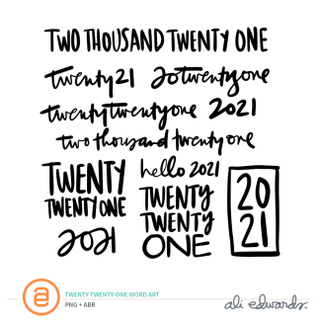 TWO THOUSAND TWENTY ONE
twenty21 20twentyone
twentytwentyone 2021
two thousand twenty one
TWENTY
TWENTY ONE
2021
hello 2021
TWENTY
TWENTY
ONE
20
21
a
TWENTY TWENTY-ONE WORD ART
PNG + ABR
ali edwards